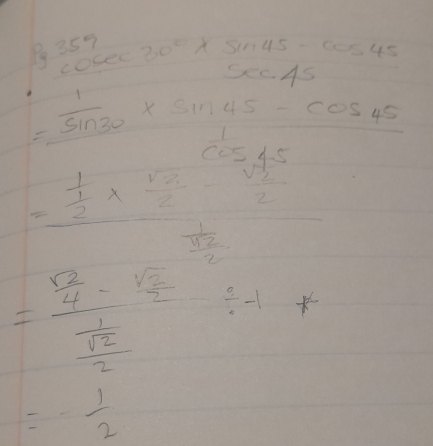 Pg 359
cosec 30° × sin 45 - cos 45
sec 45
= 1/sin30 × sin 45 - cos 45
1/cos 45
= 1/(1/2) × √2/2 - √2/2
1/(√2/2)
= √2/4 - √2/2 ÷ -1 *
1/(√2/2)
= - 1/2